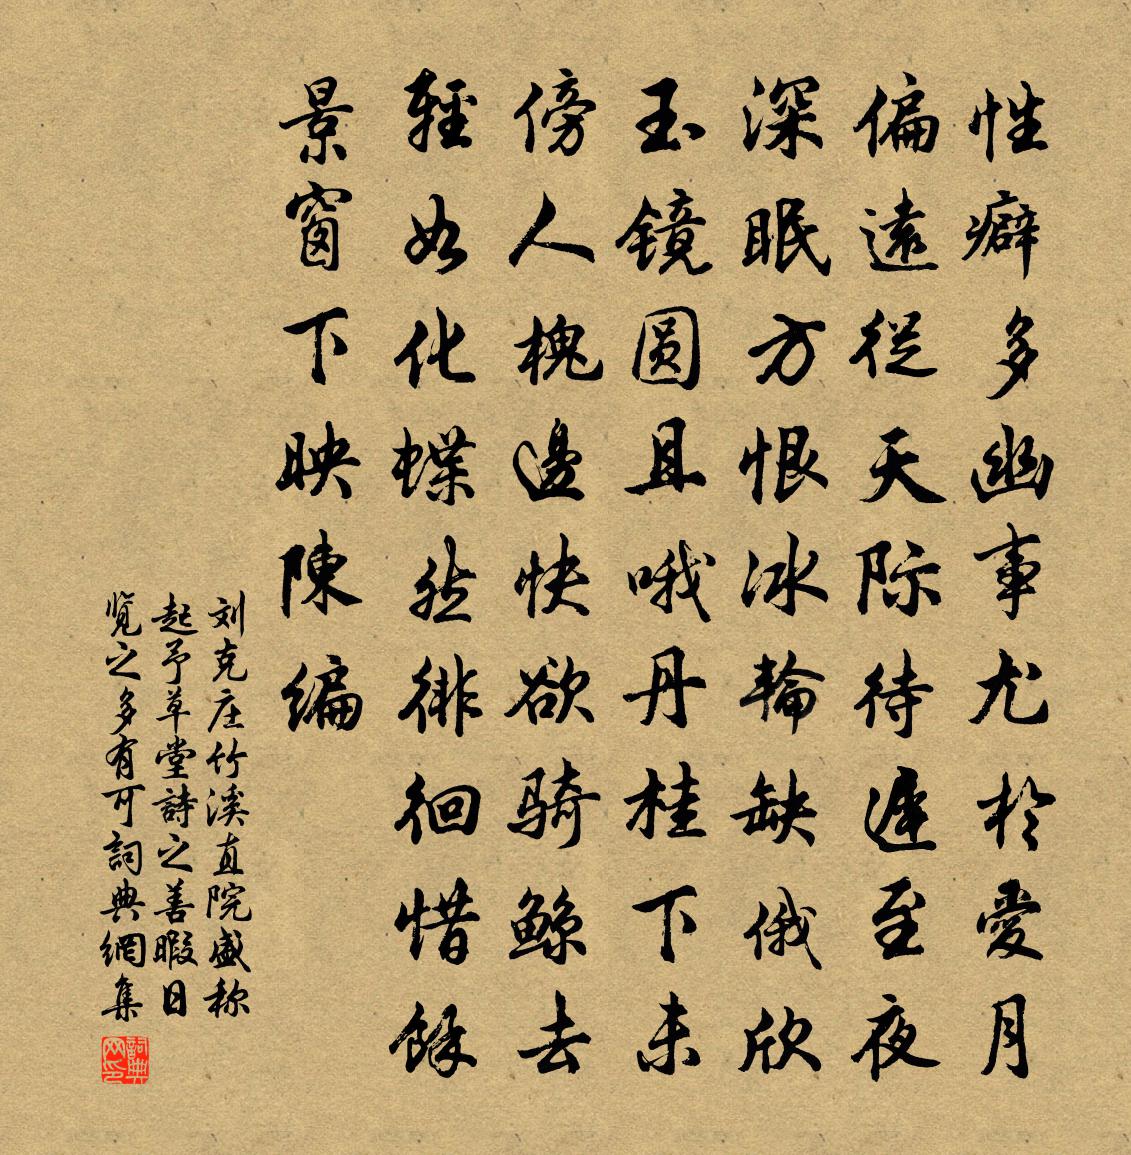 性癖多幽事尤於愛月
偏遠從天际待遲至夜
深眠方恨冰輪缺俄欣
玉镜圆且哦丹桂下未
傍人槐邊快欲骑鲸去
輕如化蝶然徘徊惜餘
景窗下映陳編
刘克庄竹溪直院盛称
起予草堂詩之善暇日
览之多有可詞典網集
詞典网印